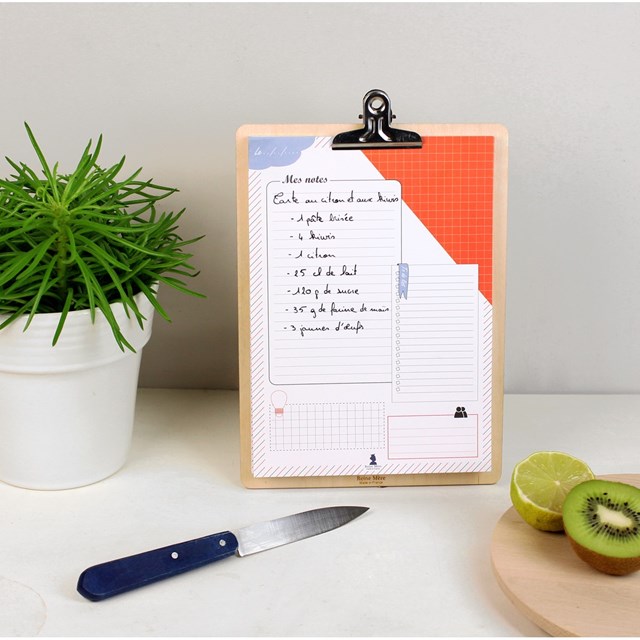 Le / /
Mes notes
Tarte au citron et aux kiwis
- 1 pâte brisée
- 4 kiwis
- 1 citron
- 25 cl de lait
- 120 g de sucre
- 35 g de farine de maïs
- 3 jaunes d'œufs
Reine Mère